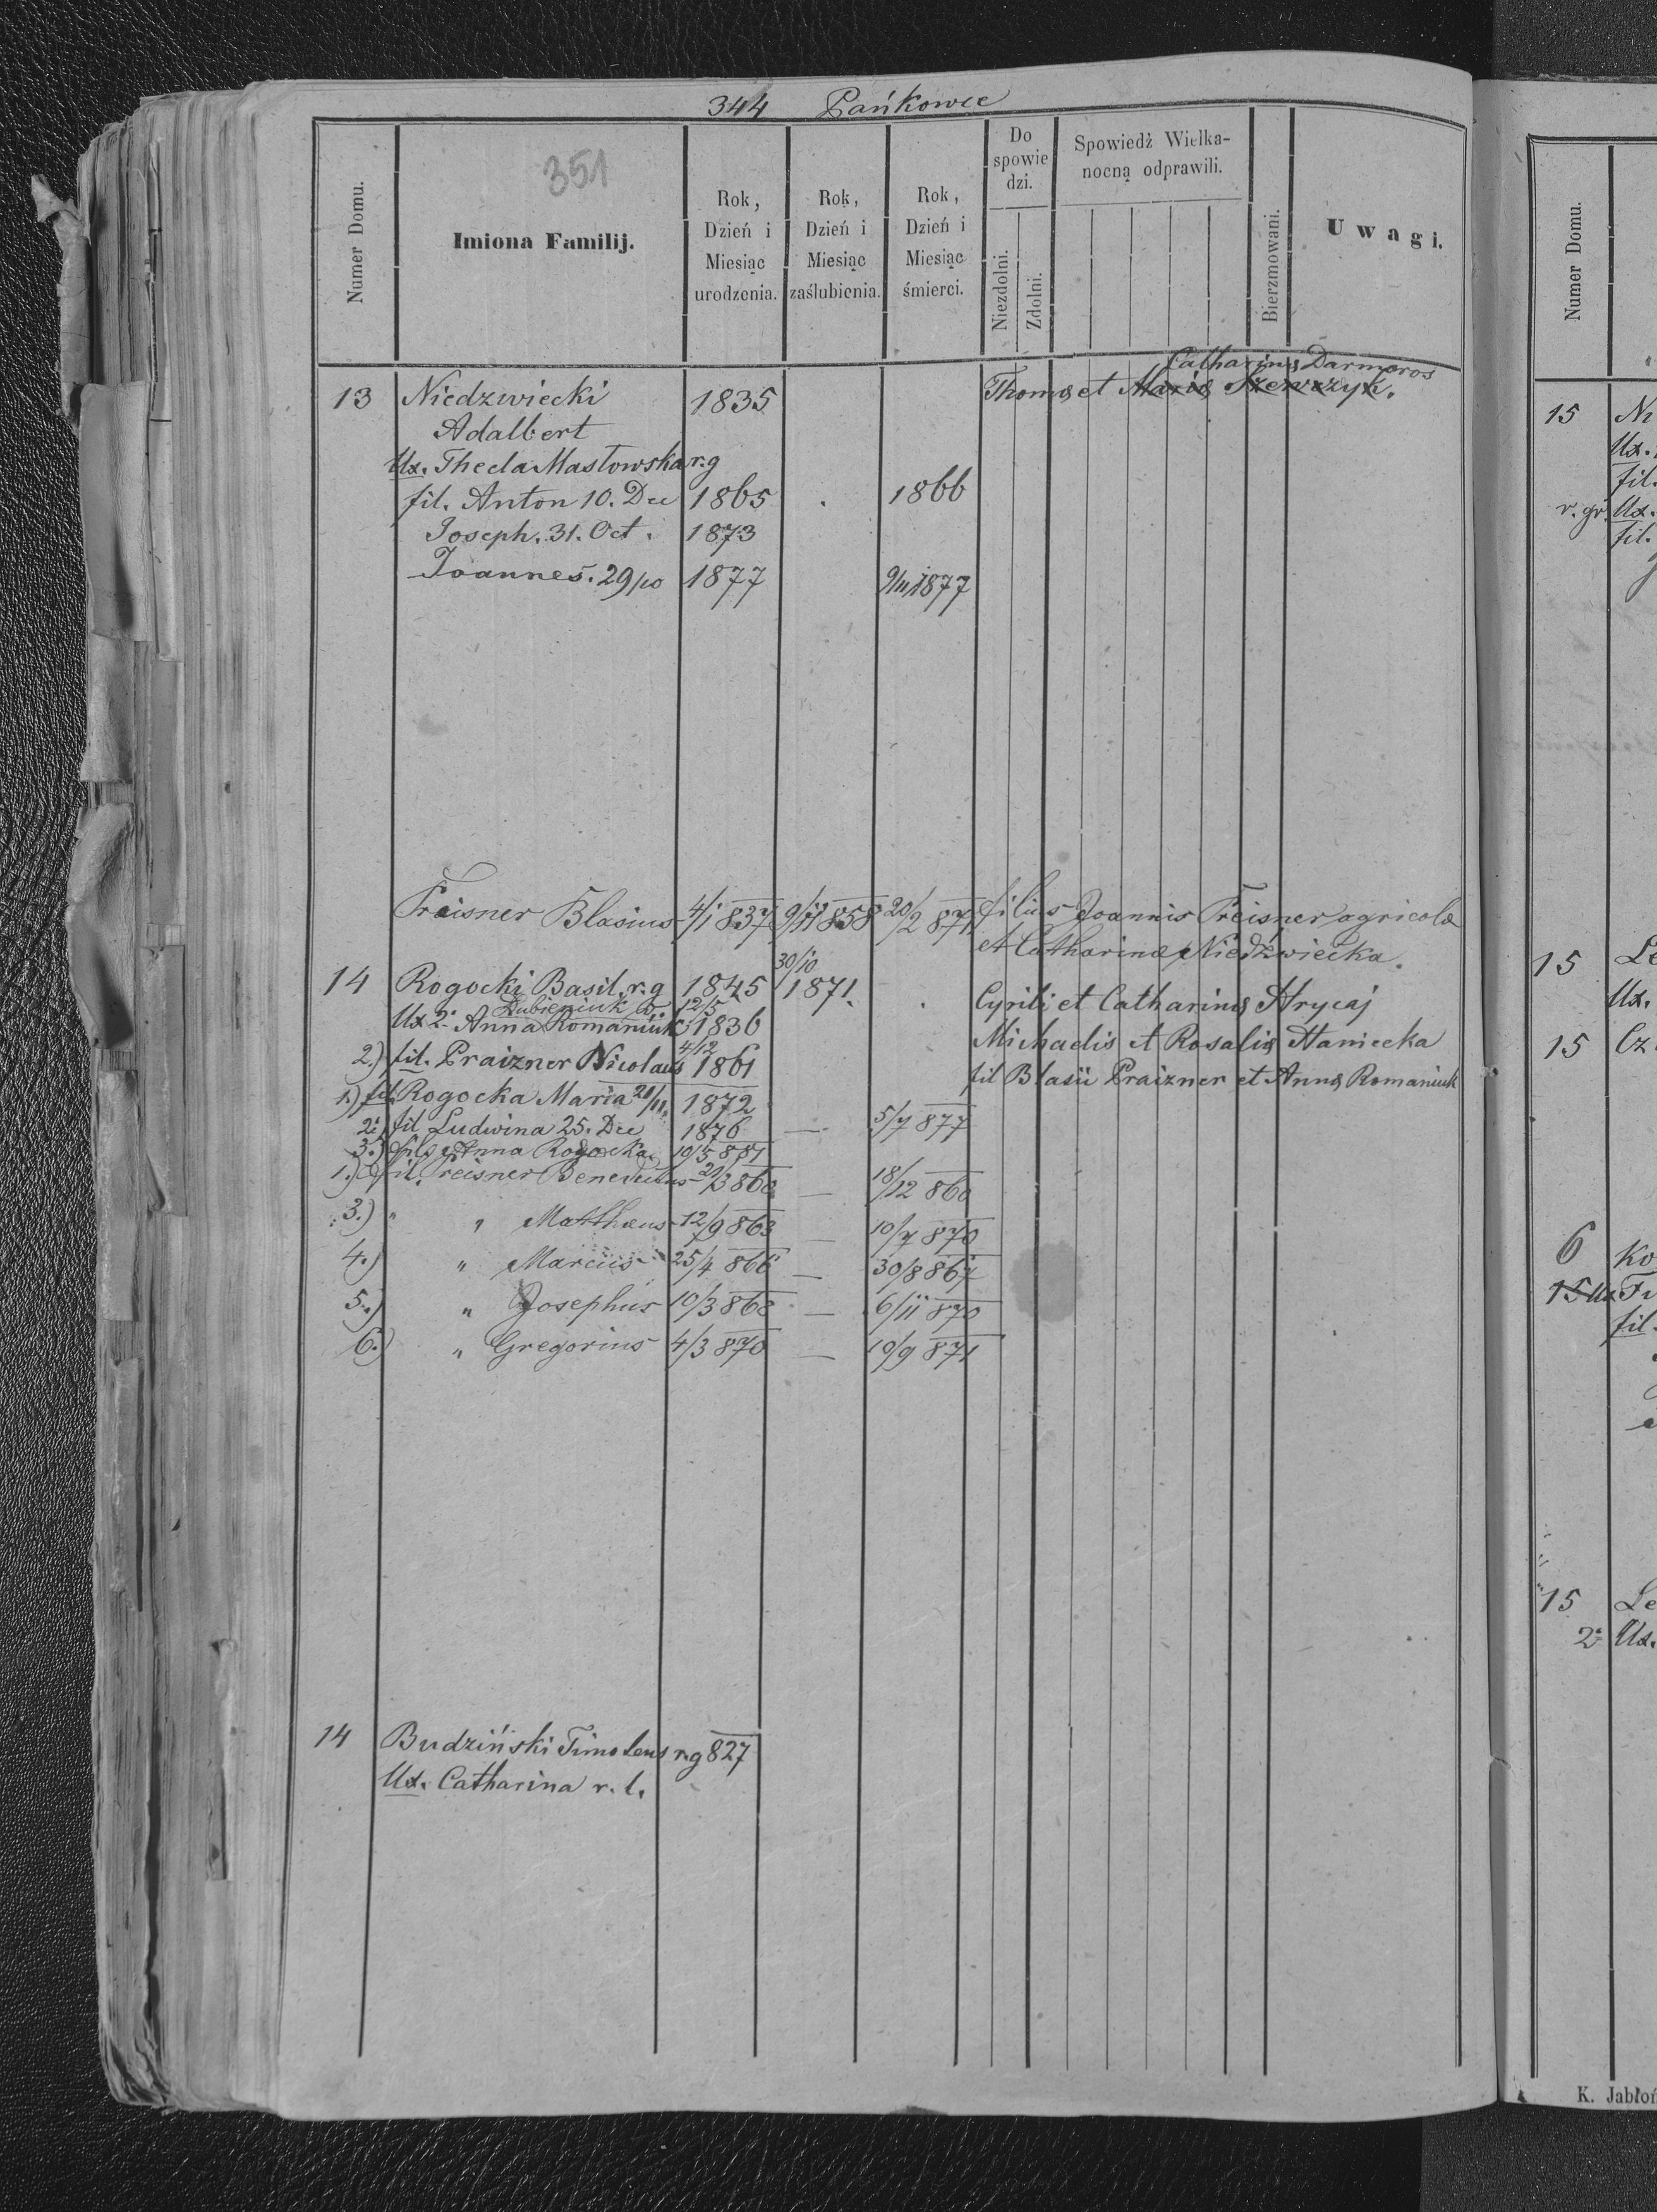 344 Pańkowce
351
Numer Domu.
Imiona Familij.
Rok, Dzień i Miesiąc urodzenia.
Rok, Dzień i Miesiąc zaślubienia.
Rok, Dzień i Miesiąc śmierci.
Do spowiedzi.
Niezdolni.
Zdolni.
Spowiedź Wielkanocną odprawili.
Bierzmowani.
Uwagi.
Catharina Darmoros
13 Niedzwiecki 1835 Thoma et Maria Szewczyk.
Adalbert
Ux. Thecla Masłowska r.g
fil. Anton 10. Dec 1865 . 1866
Joseph. 31. Oct. 1873
Joannes. 29/10 1877 9/11 1877
Preisner Blasius 4/1 837 9/11 858 20/2 871 filius Joannis Preisner agricolæ
et Catharinæ Niedźwiecka.
30/10
14 Rogocki Basil. r.g 1845 1871. . Cyrili et Catharina Hrycaj
Dubieniuk 12/5
Ux 2. Anna Romaniuk 1836 Michaelis et Rosalia Haniecka
4/12
2.) fil. Praizner Nicolaus 1861 fil Blasii Praizner et Anna Romaniuk
1.) fil. Rogocka Maria 20/11. 1872
2. fil Ludwina 25. Dec 1876 — 5/7 877
3.) Anna Rogocka 10/5 881
1.) fil. Preisner Benedictus 21/3 860 — 18/12 860
3.) " " Matthæus 12/9 863 — 10/7 870
4.) " Marcus 25/4 866 — 30/8 867
5.) " Josephus 10/3 868 — 6/11 870
6.) " Gregorius 4/3 870 — 10/9 871
14 Budziński Timoteus r.g 827
Ux. Catharina r. l.
Numer Domu.
15
Ux.
fil.
r. gr. Ux.
fil.
15 Le
Ux.
15 Cz
6 Ko
15
fil.
15 Le
2. Ux.
K. Jabłoń